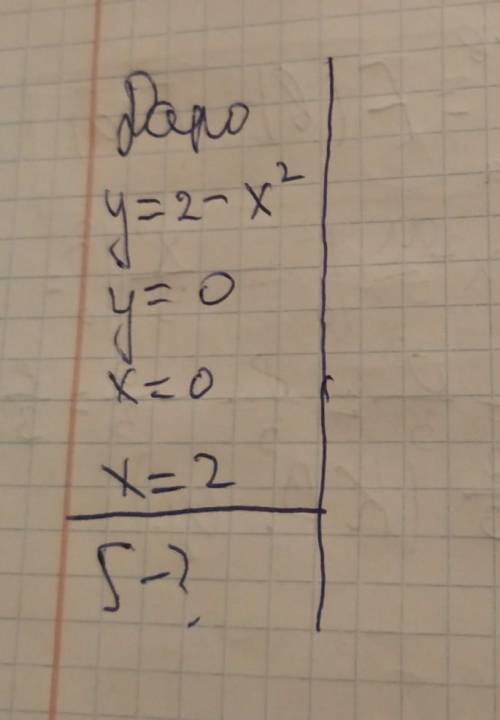 Дано
y = 2 - x²
y = 0
x = 0
x = 2
S - ?